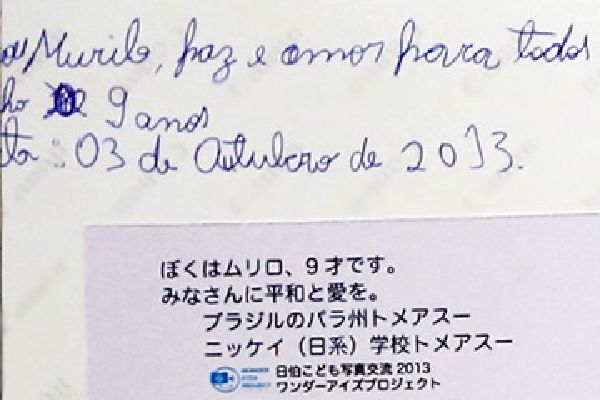 ou Murilo, paz e amor para todos
ho 9 anos
ta: 03 de Outubro de 2013.
ぼくはムリロ、9才です。
みなさんに平和と愛を。
ブラジルのパラ州トメアスー
ニッケイ（日系）学校トメアスー
日伯こども写真交流 2013
ワンダーアイズプロジェクト